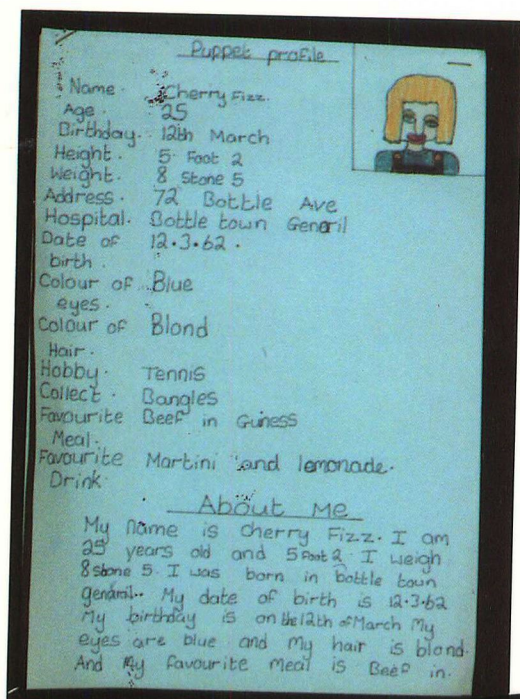 Puppet profile
Name. Cherry Fizz.
Age. 25
Birthday. 12th March
Height. 5 Foot 2
Weight. 8 Stone 5
Address. 72 Bottle Ave
Hospital. Bottle town Generil
Date of 12.3.62.
birth.
Colour of Blue
eyes.
Colour of Blond
Hair.
Hobby. Tennis
Collect. Bangles
Favourite Beef in Guness
Meal.
Favourite Martini and lemonade.
Drink
About Me
My name is cherry Fizz. I am
25 years old and 5 Foot 2. I weigh
8 stone 5. I was born in bottle town
genaril. My date of birth is 12.3.62
My birthday is on the 12th of March My
eyes are blue and my hair is blond.
And My favourite meal is Beef in.